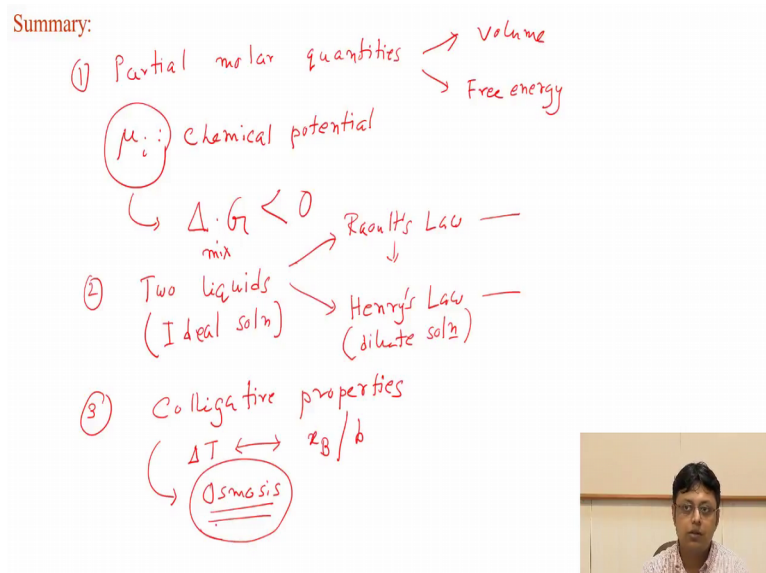 Summary:
① Partial molar quantities
Volume
Free energy
μi : Chemical potential
Δmix G < 0
② Two liquids
(Ideal soln)
Raoult's Law —
Henry's Law —
(dilute soln)
③ Colligative properties
ΔT ↔ xB / b
Osmosis